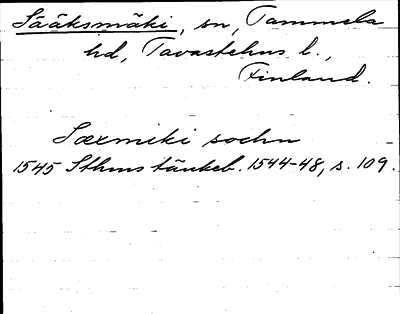 Sääksmäki, sn, Tammela
hd, Tavastehus l.,
Finland.
Saxmeki sochn
1545 Sthms tänkeb. 1544-48, s. 109.